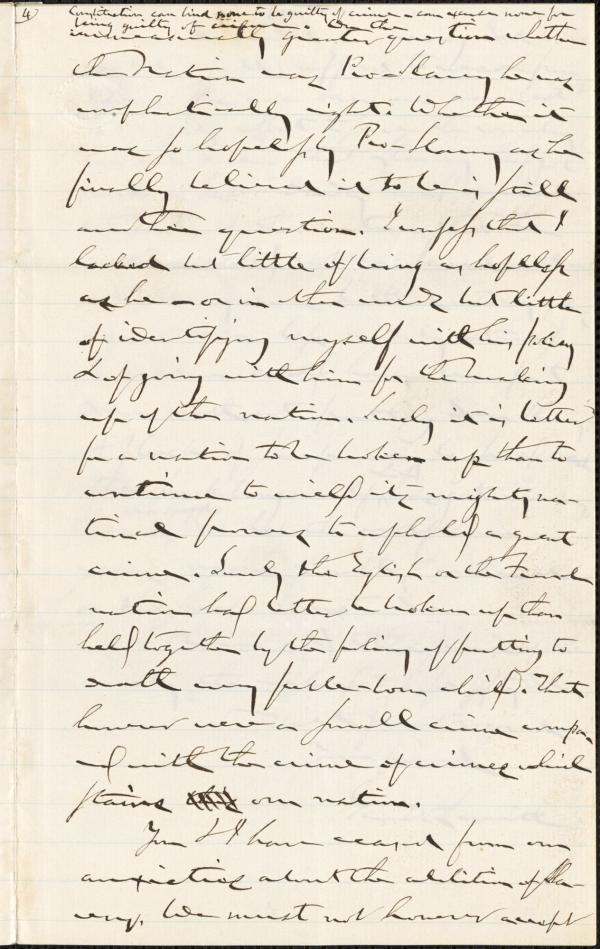 4)
Constitution can bind none to be guilty of crime & can excuse none for
being guilty of crime. On the
increasingly greater question whether
the Nation was Pro-Slavery he was
emphatically right. Whether it
was so hopelessly Pro-Slavery as he
finally believed it to be is still
another question. I confess that I
lacked but little of being as hopeless
as he — or in other words but little
of identifying myself with his policy
& of going with him for the breaking
up of the nation. Surely it is better
for a nation to be broken up than to
continue to wield its mighty na-
tional powers to uphold a great
crime. Surely the English or the French
nation had better be broken up than
held together by the policy of putting to
death every feeble-born child. That
however were a small crime compar-
ed with the crime of crimes which
stains our nation.
You & I have ceased from our
anxieties about the abolition of Sla-
very. We must not however accept